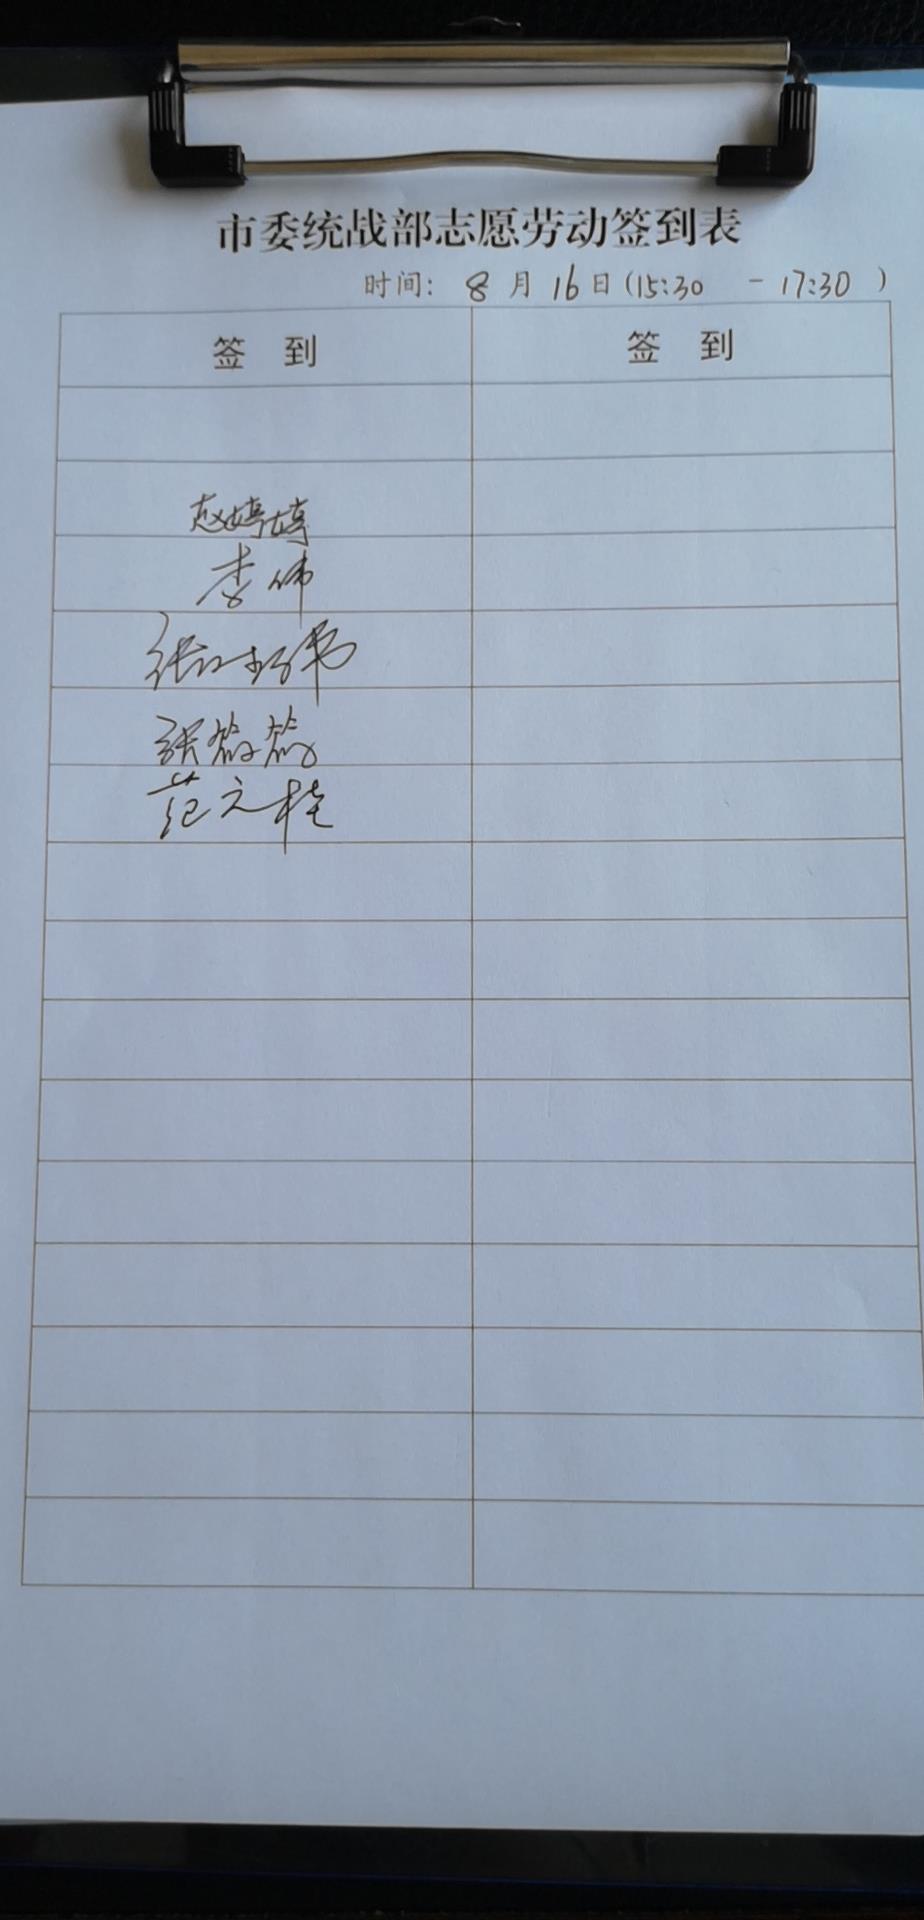 市委统战部志愿劳动签到表
时间: 8月16日(15:30 - 17:30 )
签 到 签 到
赵婷婷
李伟
张
张筱筱
范立桂